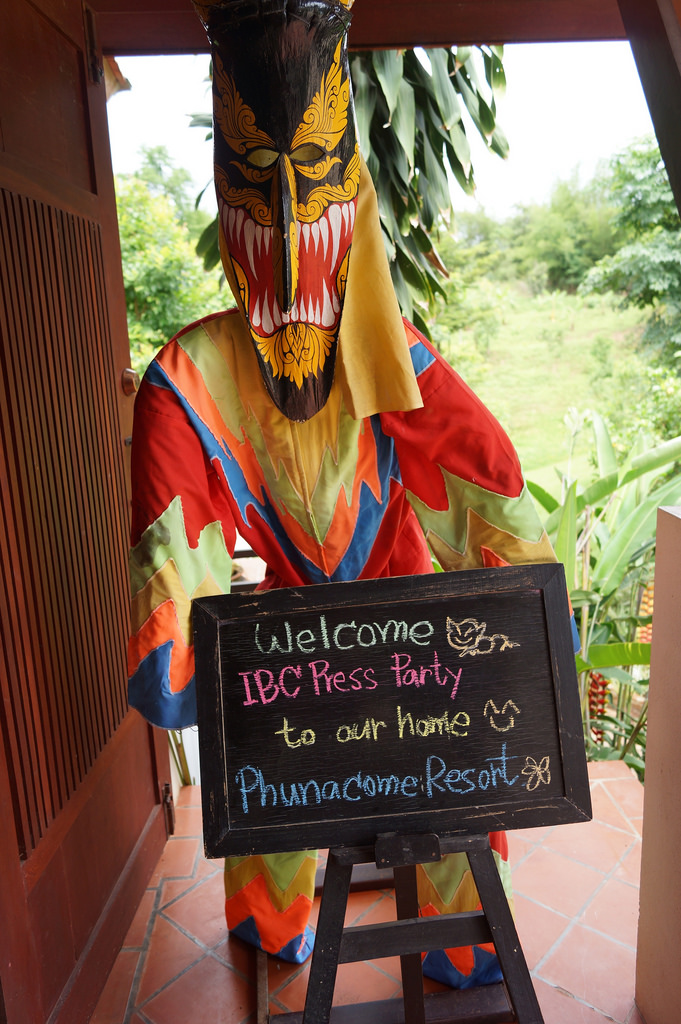 Welcome
IBC Press Party
to our home
Phunacome Resort